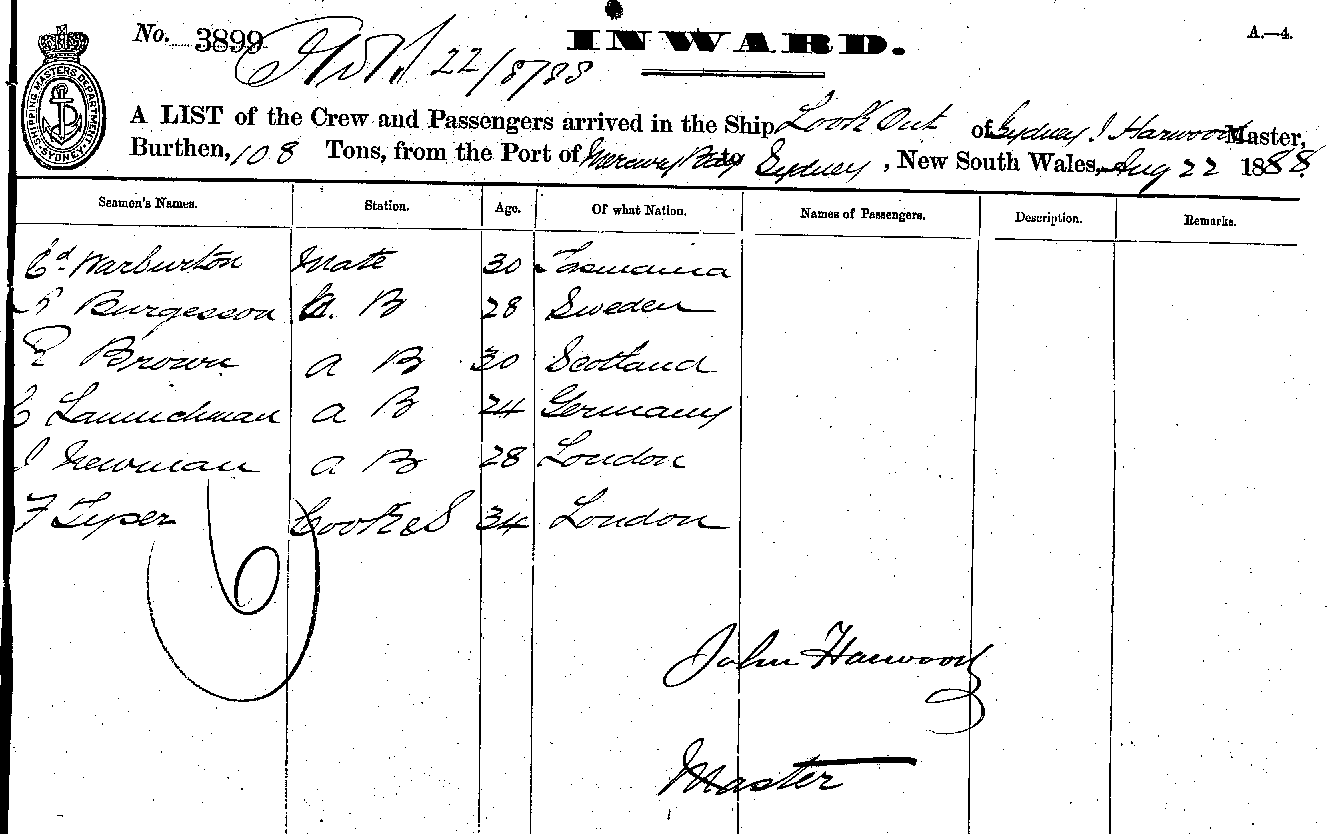 No. 3899 22/8/88
INWARD.
A.—4.
SHIPPING MASTERS DEPARTMENT SYDNEY
A LIST of the Crew and Passengers arrived in the Ship Look Out of Sydney J Harwood Master,
Burthen, 108 Tons, from the Port of to Sydney, New South Wales, Aug 22 1888.
Seamen's Names. Station. Age. Of what Nation. Names of Passengers. Description. Remarks.
Ed. Warburton Mate 30 Tasmania
Burgesson A. B 28 Sweden
Brown a B 30 Scotland
C a B 24 Germany
J Newman a B 28 London
F Cook & S 34 London
6
John Harwood
Master